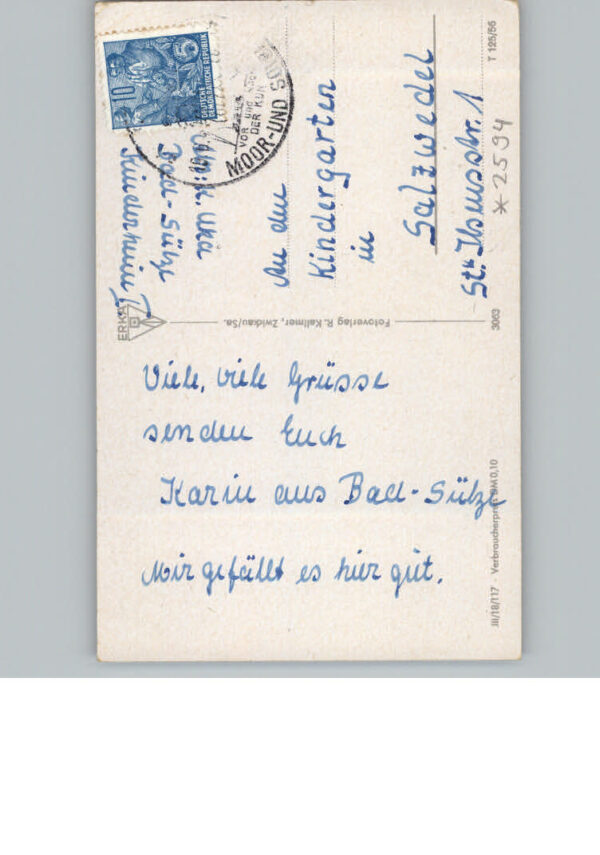 Viele, viele Grüsse
senden Euch
Karin aus Bad-Sülze
Mir gefällt es hier gut.
An den
Kindergarten
in
Salzwedel
St. Ilsenstr. 1
* 2594
Bad-Sülze
Kinderheim I
10
5
DEUTSCHE
DEMOKRATISCHE REPUBLIK
VOR UND
DER KUR
MOOR-UND
ERKA
Fotoverlag R. Kallmer, Zwickau/Sa.
3063
T 125/56
III/18/117 · Verbraucherpreis DM 0,10